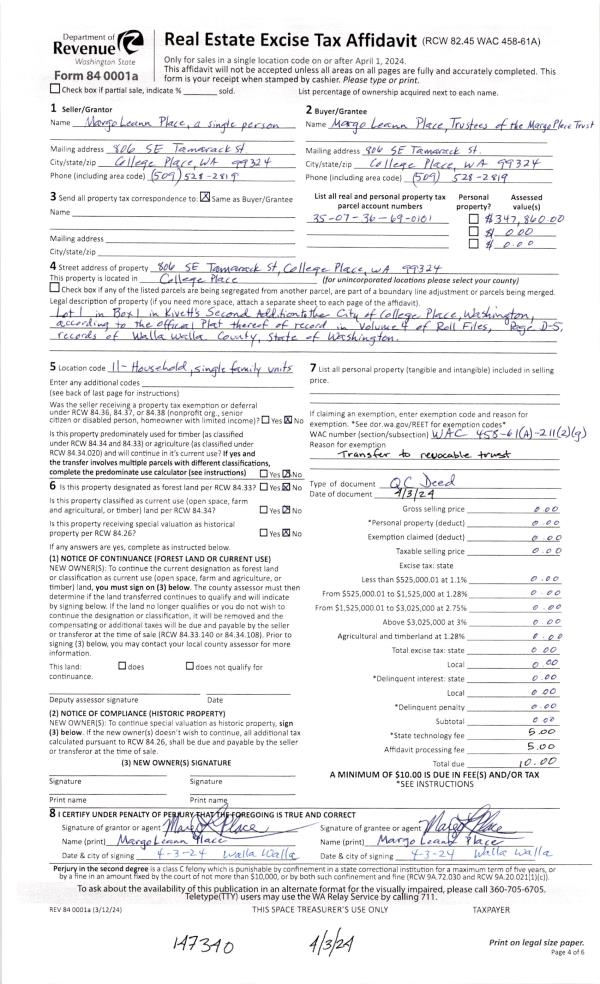 Department of
Revenue
Washington State
Form 84 0001a
Real Estate Excise Tax Affidavit (RCW 82.45 WAC 458-61A)
Only for sales in a single location code on or after April 1, 2024.
This affidavit will not be accepted unless all areas on all pages are fully and accurately completed. This
form is your receipt when stamped by cashier. Please type or print.
Check box if partial sale, indicate % ______ sold. List percentage of ownership acquired next to each name.
1 Seller/Grantor
Name Margo Leann Place, a single person
Mailing address 806 SE Tamarack St.
City/state/zip College Place, WA 99324
Phone (including area code) (509) 528-2819
2 Buyer/Grantee
Name Margo Leann Place, Trustees of the Margo Place Trust
Mailing address 806 SE Tamarack St.
City/state/zip College Place, WA 99324
Phone (including area code) (509) 528-2819
3 Send all property tax correspondence to: ☒ Same as Buyer/Grantee
Name
Mailing address
City/state/zip
List all real and personal property tax
parcel account numbers
Personal
property?
Assessed
value(s)
35-07-36-69-0101 ☐ $347,860.00
☐ $ 0.00
☐ $ 0.00
4 Street address of property 806 SE Tamarack St, College Place, WA 99324
This property is located in College Place (for unincorporated locations please select your county)
☐ Check box if any of the listed parcels are being segregated from another parcel, are part of a boundary line adjustment or parcels being merged.
Legal description of property (if you need more space, attach a separate sheet to each page of the affidavit).
Lot 1 in Box 1 in Kivett's Second Addition to the City of College Place, Washington,
according to the official Plat thereof of record in Volume 4 of Roll Files, Page D-5,
records of Walla Walla County, State of Washington.
5 Location code 11-Household, single family units
Enter any additional codes
(see back of last page for instructions)
Was the seller receiving a property tax exemption or deferral
under RCW 84.36, 84.37, or 84.38 (nonprofit org., senior
citizen or disabled person, homeowner with limited income)? ☐ Yes ☒ No
Is this property predominately used for timber (as classified
under RCW 84.34 and 84.33) or agriculture (as classified under
RCW 84.34.020) and will continue in it's current use? If yes and
the transfer involves multiple parcels with different classifications,
complete the predominate use calculator (see instructions) ☐ Yes ☒ No
6 Is this property designated as forest land per RCW 84.33? ☐ Yes ☒ No
Is this property classified as current use (open space, farm
and agricultural, or timber) land per RCW 84.34? ☐ Yes ☒ No
Is this property receiving special valuation as historical
property per RCW 84.26? ☐ Yes ☒ No
If any answers are yes, complete as instructed below.
(1) NOTICE OF CONTINUANCE (FOREST LAND OR CURRENT USE)
NEW OWNER(S): To continue the current designation as forest land
or classification as current use (open space, farm and agriculture, or
timber) land, you must sign on (3) below. The county assessor must then
determine if the land transferred continues to qualify and will indicate
by signing below. If the land no longer qualifies or you do not wish to
continue the designation or classification, it will be removed and the
compensating or additional taxes will be due and payable by the seller
or transferor at the time of sale (RCW 84.33.140 or 84.34.108). Prior to
signing (3) below, you may contact your local county assessor for more
information.
This land: ☐ does ☐ does not qualify for
continuance.
Deputy assessor signature Date
(2) NOTICE OF COMPLIANCE (HISTORIC PROPERTY)
NEW OWNER(S): To continue special valuation as historic property, sign
(3) below. If the new owner(s) doesn't wish to continue, all additional tax
calculated pursuant to RCW 84.26, shall be due and payable by the seller
or transferor at the time of sale.
(3) NEW OWNER(S) SIGNATURE
Signature Signature
Print name Print name
7 List all personal property (tangible and intangible) included in selling
price.
If claiming an exemption, enter exemption code and reason for
exemption. *See dor.wa.gov/REET for exemption codes*
WAC number (section/subsection) WAC 458-61(A)-211(2)(g)
Reason for exemption
Transfer to revocable trust
Type of document QC Deed
Date of document 4/3/24
Gross selling price 0.00
*Personal property (deduct) 0.00
Exemption claimed (deduct) 0.00
Taxable selling price 0.00
Excise tax: state
Less than $525,000.01 at 1.1% 0.00
From $525,000.01 to $1,525,000 at 1.28% 0.00
From $1,525,000.01 to $3,025,000 at 2.75% 0.00
Above $3,025,000 at 3% 0.00
Agricultural and timberland at 1.28% 0.00
Total excise tax: state 0.00
Local 0.00
*Delinquent interest: state 0.00
Local 0.00
*Delinquent penalty 0.00
Subtotal 0.00
*State technology fee 5.00
Affidavit processing fee 5.00
Total due 10.00
A MINIMUM OF $10.00 IS DUE IN FEE(S) AND/OR TAX
*SEE INSTRUCTIONS
8 I CERTIFY UNDER PENALTY OF PERJURY THAT THE FOREGOING IS TRUE AND CORRECT
Signature of grantor or agent Margo L Place
Name (print) Margo Leann Place
Date & city of signing 4-3-24 Walla Walla
Signature of grantee or agent Margo L Place
Name (print) Margo Leann Place
Date & city of signing 4-3-24 Walla Walla
Perjury in the second degree is a class C felony which is punishable by confinement in a state correctional institution for a maximum term of five years, or
by a fine in an amount fixed by the court of not more than $10,000, or by both such confinement and fine (RCW 9A.72.030 and RCW 9A.20.021(1)(c)).
To ask about the availability of this publication in an alternate format for the visually impaired, please call 360-705-6705.
Teletype(TTY) users may use the WA Relay Service by calling 711.
REV 84 0001a (3/12/24) THIS SPACE TREASURER'S USE ONLY TAXPAYER
147340 4/3/24
Print on legal size paper.
Page 4 of 6